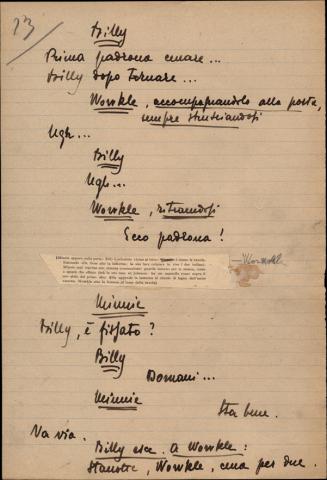 23
Billy
Prima padrona cenare...
Billy dopo tornare...
Wowkle, accompagnandolo alla porta,
sempre strusciandosi
Ugh...
Billy
Ugh...
Wowkle, ritraendosi
Ecco padrona!
Minnie
Billy, è fissato?
Billy
Domani...
Minnie
Sta bene.
Va via.
Billy esce. A Wowkle:
Stanotte, Wowkle, cena per due.